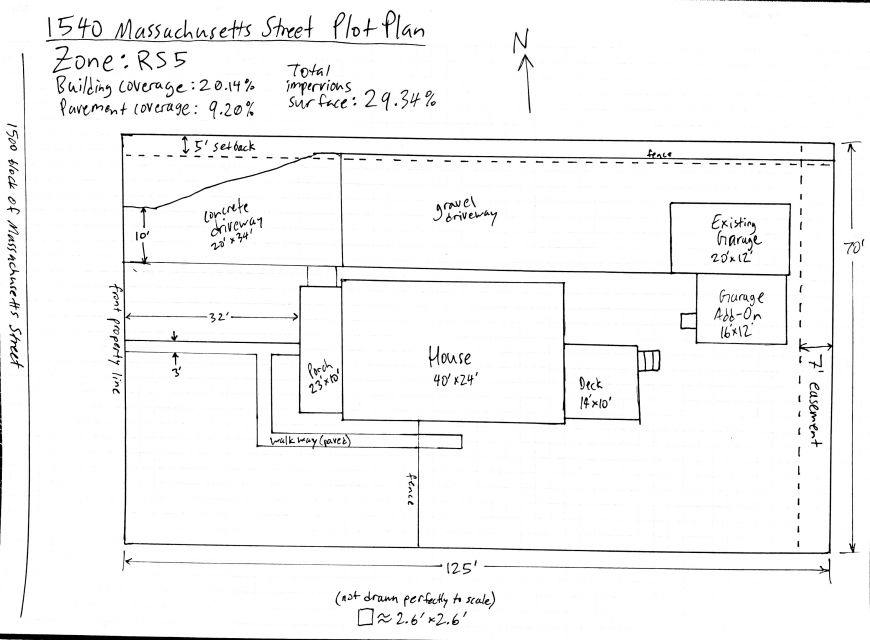 1540 Massachusetts Street Plot Plan
Zone: RS5
Building coverage: 20.14%
Pavement coverage: 9.20%
Total
impervious
surface: 29.34%
N
1500 block of Massachusetts Street
5' setback
fence
concrete
driveway
20' x 34'
gravel
driveway
10'
Existing
Garage
20'x12'
70'
Garage
Add-On
16'x12'
front property line
32'
3'
Porch
23'x10'
House
40'x24'
Deck
14'x10'
7' easement
walkway (paved)
fence
125'
(not drawn perfectly to scale)
≈ 2.6' x 2.6'